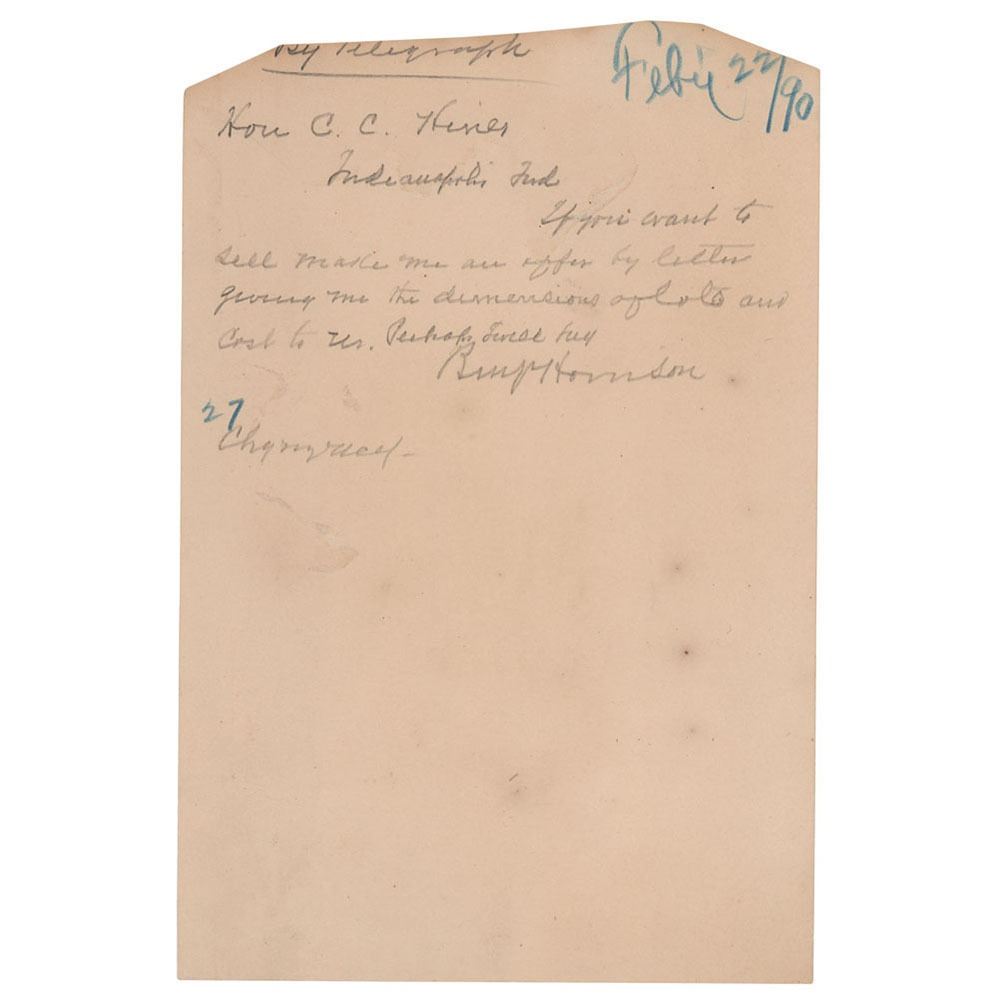 By Telegraph
Feby 22/90
Hon C. C. Hines
Indianapolis Ind
If you want to
sell make me an offer by letter
giving me the dimensions of lots and
cost to us. Perhaps I will buy
Benj Harrison
27